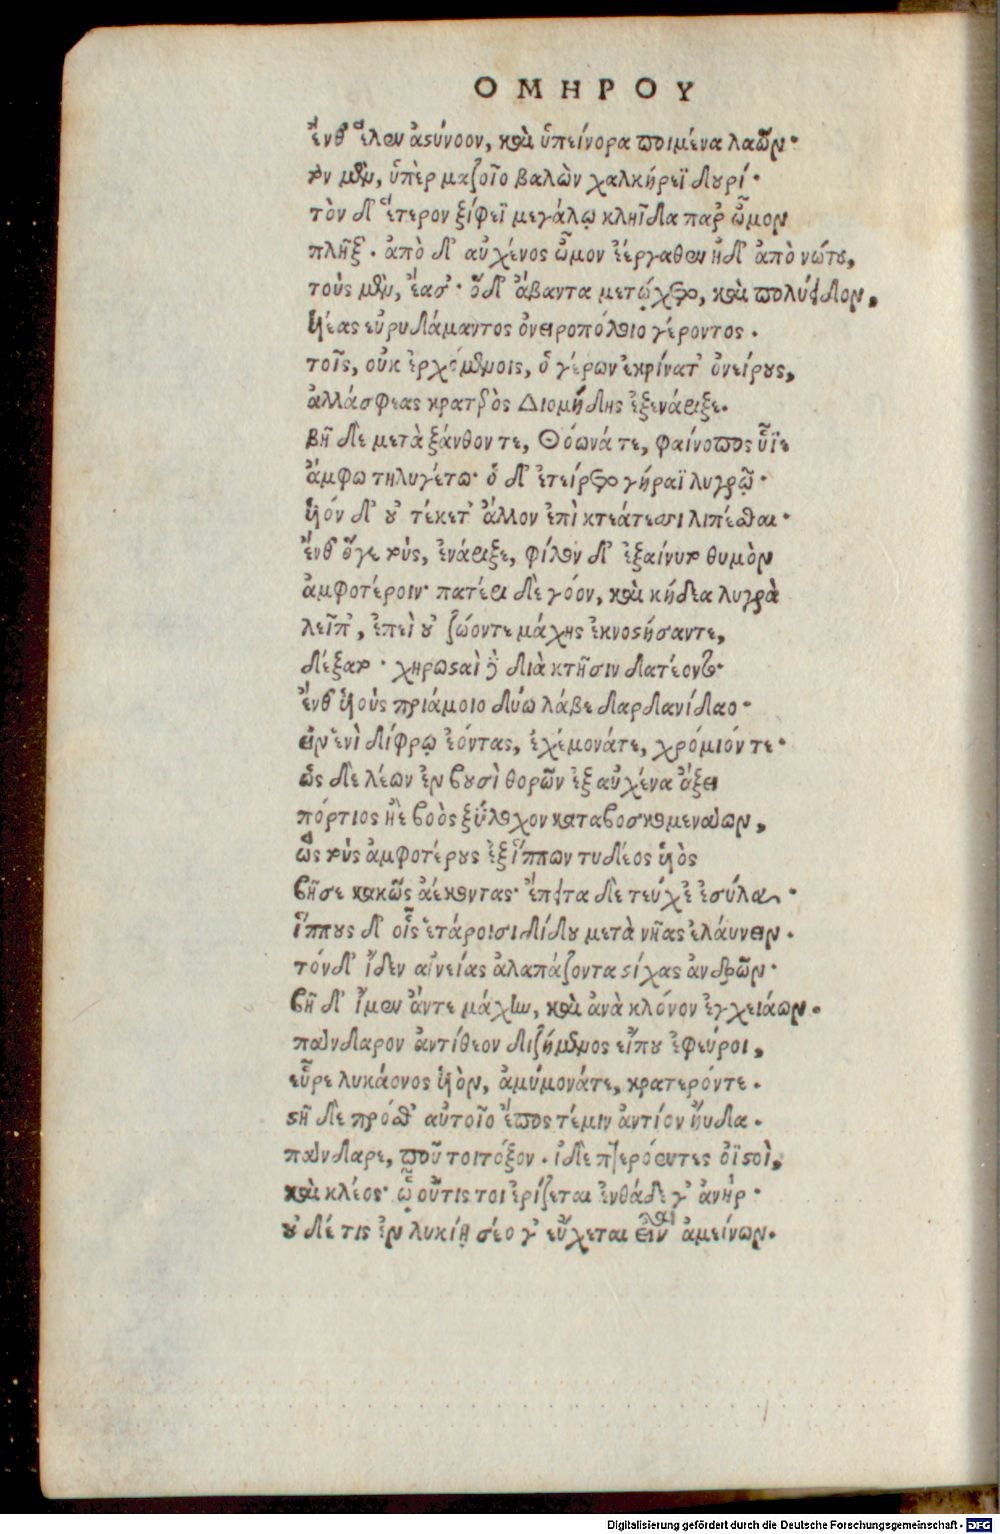 ΟΜΗΡΟΥ
ἔνθ' ἕλεν ἀστύνοον, καὶ ὑπείνορα ποιμένα λαῶν·
τὸν μὲν, ὑπὲρ μαζοῖο βαλὼν χαλκήρεϊ δουρί·
τὸν δ' ἕτερον ξίφεϊ μεγάλῳ κληῗδα παρ' ὦμον
πλῆξ'. ἀπὸ δ' αὐχένος ὦμον ἐέργαθεν ἠδ' ἀπὸ νώτου,
τοὺς μὲν, ἔασ'· ὁ δ' ἄβαντα μετῴχετο, καὶ πολύειδον,
ὑιέας εὐρυδάμαντος ὀνειροπόλοιο γέροντος.
τοῖς, οὐκ ἐρχομένοις, ὁ γέρων ἐκρίνατ' ὀνείρους,
ἀλλάσφεας κρατερὸς Διομήδης ἐξενάριξε.
βῆ δὲ μετὰ ξάνθον τε, Θόωνά τε, φαίνοπος ὗϊε
ἄμφω τηλυγέτω· ὁ δ' ἐτείρετο γήραϊ λυγρῷ·
ὑιόν δ' οὐ τέκετ' ἄλλον ἐπὶ κτεάτεσσι λιπέσθαι·
ἔνθ' ὅγε τοὺς, ἐνάριξε, φίλον δ' ἐξαίνυτο θυμὸν
ἀμφοτέροιν· πατέρι δὲ γόον, καὶ κήδεα λυγρὰ
λεῖπ', ἐπεὶ οὐ ζώοντε μάχης ἐκνοστήσαντε,
δέξατο· χηρωσταὶ δὲ διὰ κτῆσιν δατέοντο·
ἔνθ' ὑιοὺς πριάμοιο δύω λάβε δαρδανίδαο·
εἰν ἑνὶ δίφρῳ ἐόντας, ἐχέμονάτε, χρόμιόν τε·
ὡς δὲ λέων ἐν βουσὶ θορῶν ἐξ αὐχένα ἄξει
πόρτιος ἠὲ βοὸς ξύλοχον καταβοσκομενάων,
ὣς τοὺς ἀμφοτέρους ἐξ ἵππων τυδέος ὑιὸς
βῆσε κακῶς ἀέκοντας· ἔπειτα δὲ τεύχε' ἐσύλα·
ἵππους δ' οἷς ἑτάροισι δίδου μετὰ νῆας ἐλάυνειν.
τόνδ' ἴδεν αἰνείας ἀλαπάζοντα στίχας ἀνδρῶν·
βῆ δ' ἴμεν ἄντε μάχην, καὶ ἀνὰ κλόνον ἐγχειάων.
πάνδαρον ἀντίθεον διζήμενος εἴπου ἐφεύροι,
εὗρε λυκάονος ὑιὸν, ἀμύμονάτε, κρατερόντε.
στῆ δὲ πρόσθ' αὐτοῖο ἔπος τέμιν ἀντίον ηὔδα.
πάνδαρε, ποῦ τοιτόξον. ἰδὲ πτερόεντες ὀϊστοὶ,
καὶ κλέος· ᾧ οὔτις τοι ἐρίζεται ἐνθάδε γ' ἀνήρ·
οὐ δέ τις ἐν λυκίῃ σέο γ' εὔχεται εἶναι ἀμείνων.
Digitalisierung gefördert durch die Deutsche Forschungsgemeinschaft - DFG